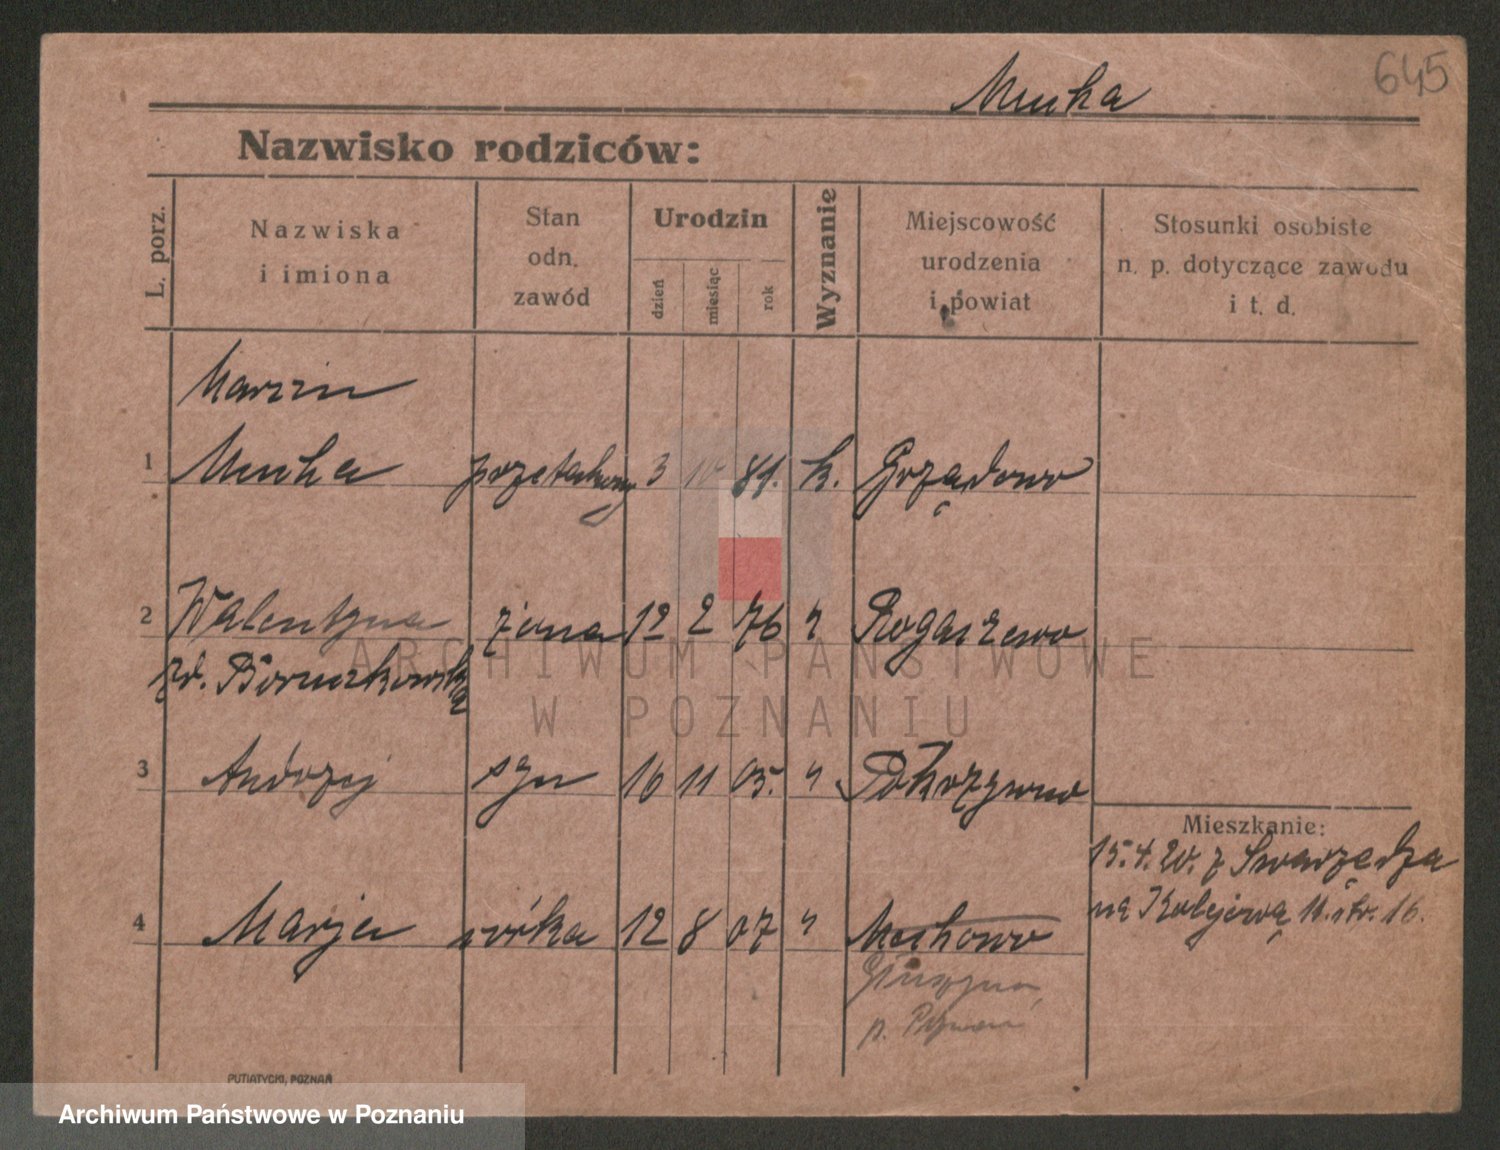 645
Mucha
Nazwisko rodziców:
L. porz.
Nazwiska
i imiona
Stan
odn.
zawód
Urodzin
dzień
miesiąc
rok
Wyznanie
Miejscowość
urodzenia
i powiat
Stosunki osobiste
n. p. dotyczące zawodu
i t. d.
Marcin
1 Mucha 3 10 81. k.
2 Walentyna żona 12 2 76 " Rogaszewo
zd. Boruczkowska
3 Andrzej syn 16 11 05. " Pokrzywno
Mieszkanie:
15.4.20. z Swarzędza
na Kolejową 11. str. 16.
4 Marja córka 12 8 07 " Mechowo
PUTIATYCKI, POZNAŃ
ARCHIWUM PAŃSTWOWE
W POZNANIU
Archiwum Państwowe w Poznaniu